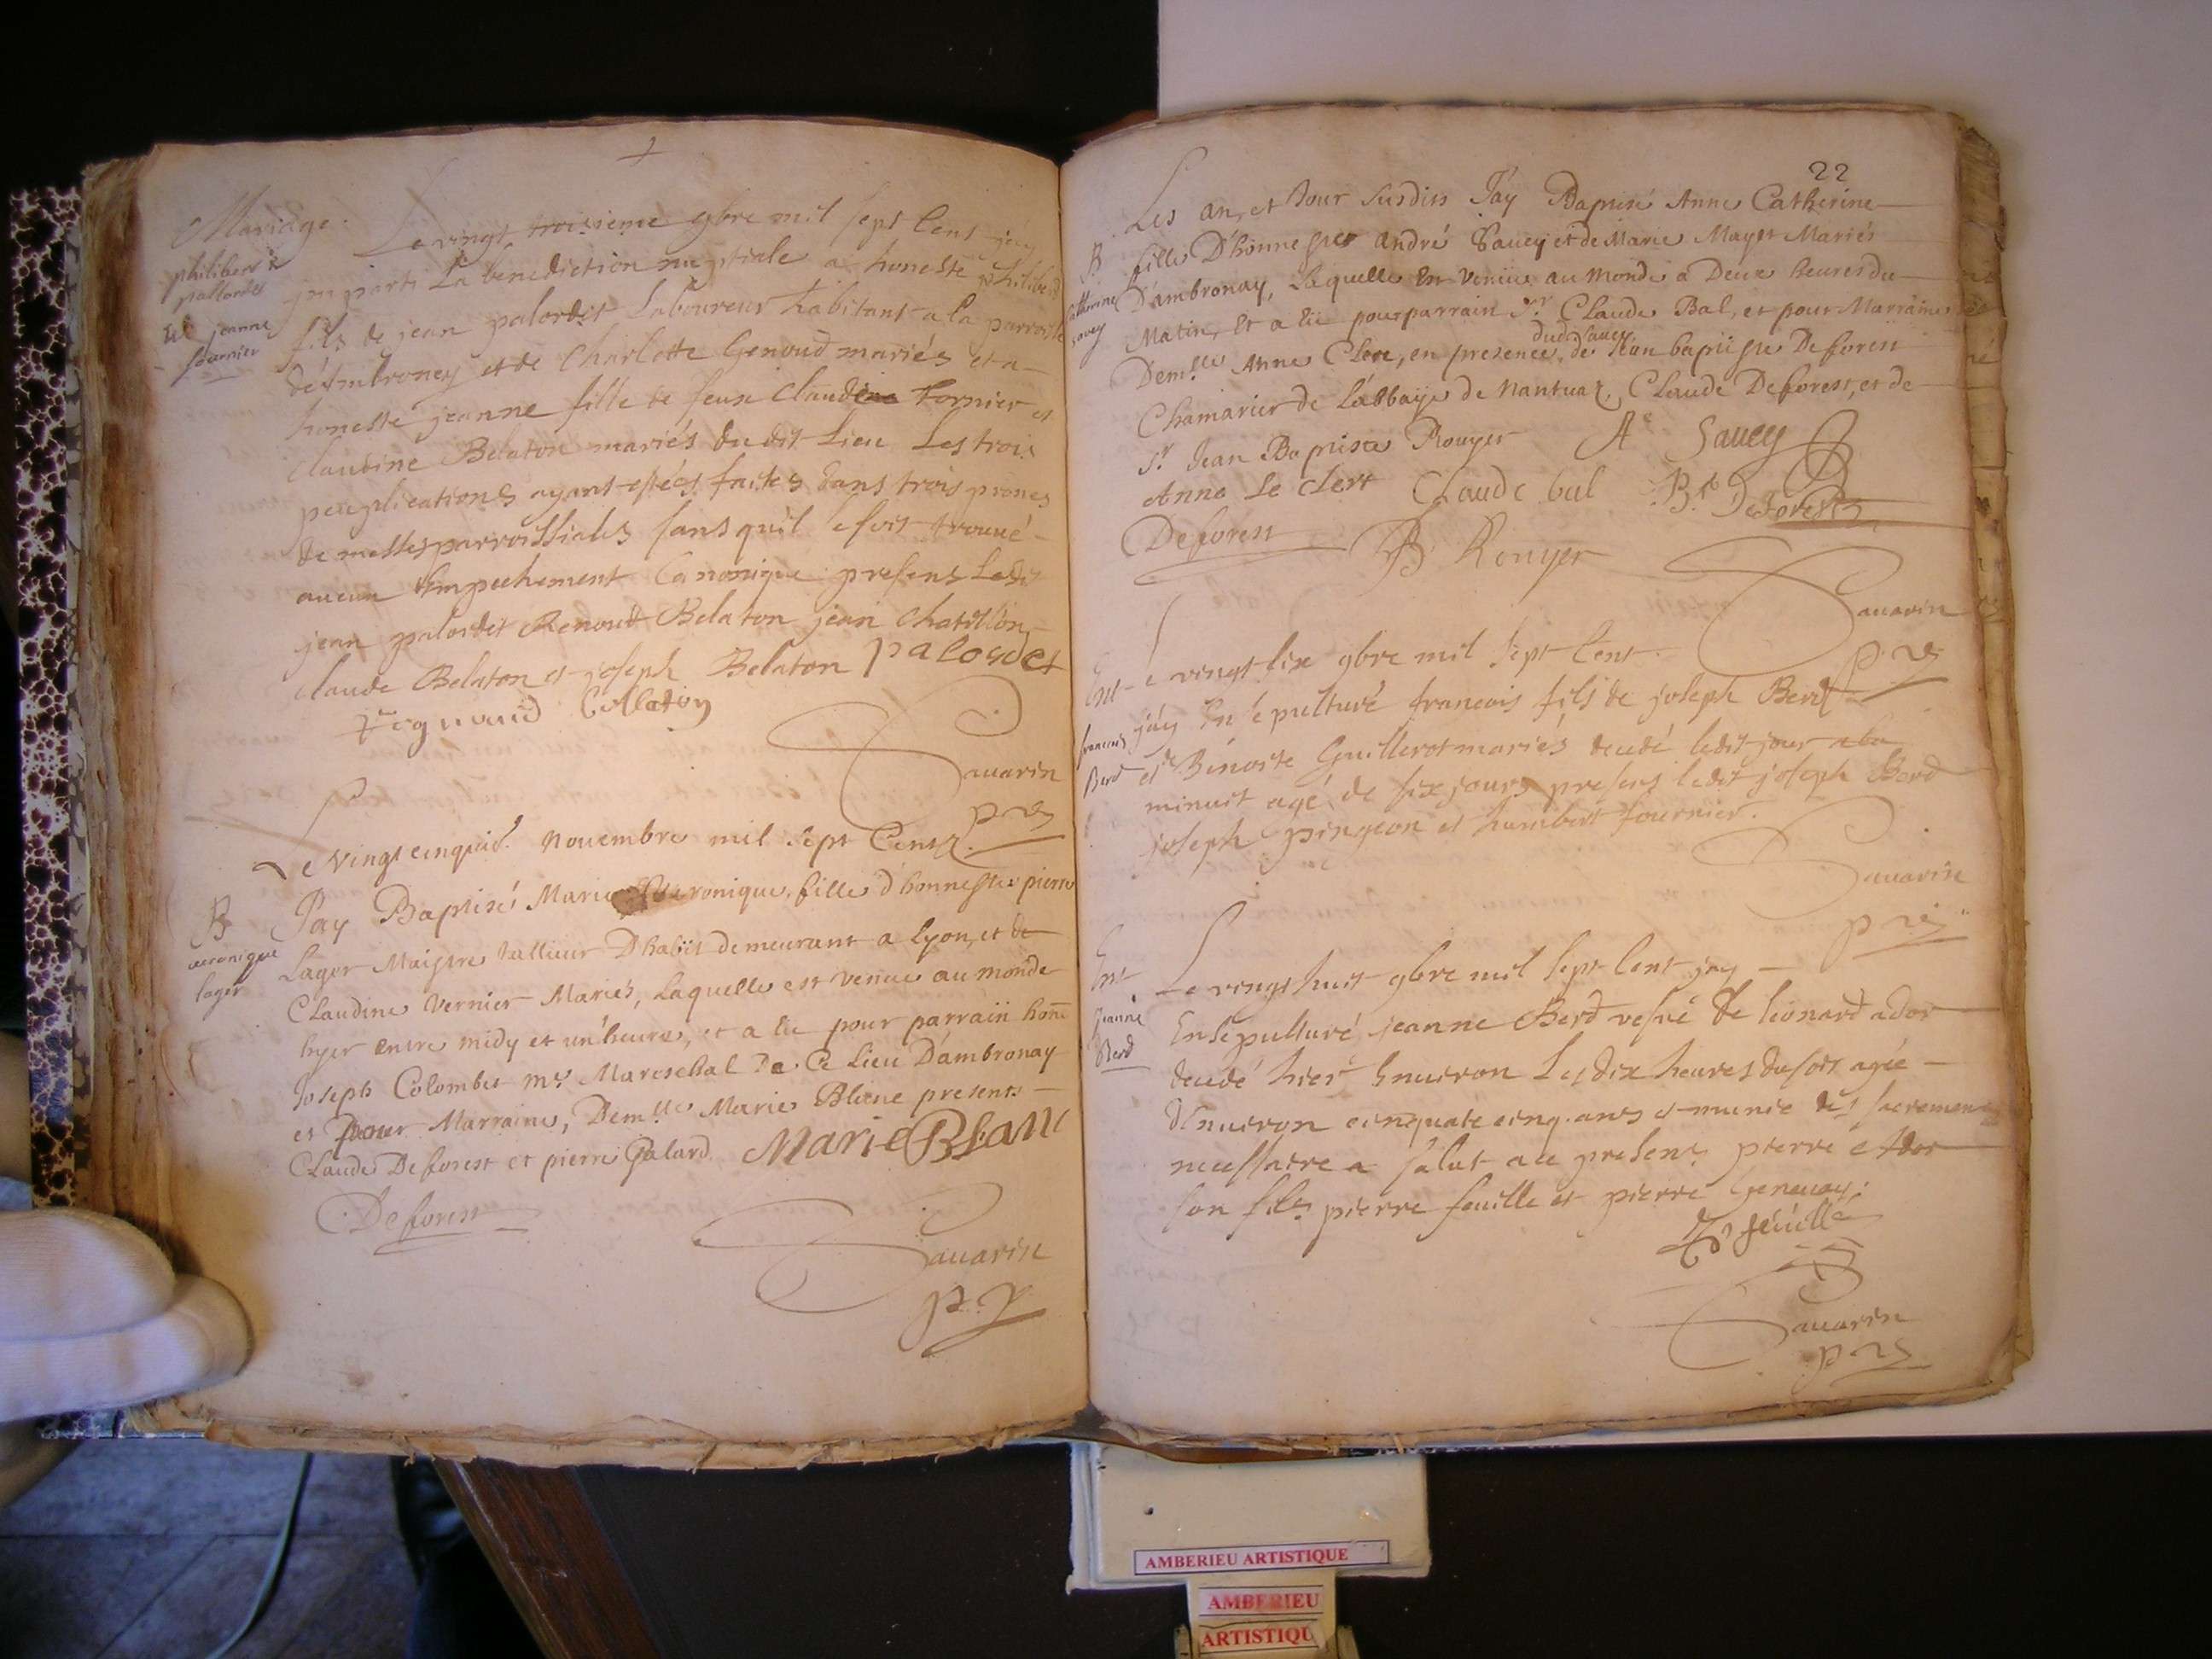 Mariage.
philibert
pallordet
Et jeanne
fournier
Le vingt troisieme 9bre mil sept Cent jay
imparti La benediction nuptiale a honeste philibert
fils de jean palordet Laboureur habitant a la parroisse
d'Ambroney et de Charlotte Genoud mariés et a
honeste jeanne fille de feux Claude fornier et
claudine Belaton mariés du dit Lieu Les trois
peuplications ayant estées faites dans trois prones
de messes parroissiales sans qu'il se soit trouué
aucun Empechement Canonique presens Ledit
jean palordet Renout Belaton jean Chatillon
claude Belaton et joseph Belaton palordet
Collaton
Sauarin
B
ueronique
lager
Le Vingt cinquie. Nouembre mil Sept Cents.
J'ay Baptisé Marie Veronique, fille d'honneste pierre
Lager Maistre tallieur D'habit demeurant a Lyon, et de
Claudine Vernier Mariés, Laquelle est venüe au monde
hyer entre midy et un'heure, et a eu pour parrain hon̄e
Joseph Colombet Mr. Mareschal De Ce Lieu D'ambronay
et Pour Marraine, Demlle Marie Blanc presents
Claude Deforest et pierre Galard. Marie BLanc
Deforest
Sauarin
22
B
Catherine
sauey
Les an, et Jour Susdits J'ay Baptisé Anne Catherine
fille D'honneste andré Sauey et de Marie Mayet Mariés
D'ambronay, Laquelle Est Venüe au Monde a Deux heures du
Matin, Et a Eu pour parrain Sr. Claude Bal, et pour Marraine
dud. Sauey
Demlle Anne Clerc, en presence, de Jean baptiste Deforest
Chamarier de L'abbaÿe de Nantua, Claude Deforest, et de
Sr. Jean Baptiste Rouyer A Sauey
Anne Le clerc Claude bal Bt. Deforest
Deforest JB Rouyer
Sauarin
Ent
francois
Berd
Le vingt six 9bre mil Sept Cent
j'ay Ensepulturé francois fils de joseph Berd
et de Benoite Guillerot mariés decedé ledit jour a la
minuit agé de six jours presens ledit joseph Berd
joseph pingeon et humbert fournier.
Sauarin
Ent
Jeanne
Berd
Le vingt huit 9bre mil Sept Cent jay
Ensepulturé jeanne Berd vefve de leonard ador
decedé hier Enuiron Les dix heures du soir agée
d'Enuiron cinquate cinq ans et munie des sacremens
necessaire a salut a ce presens pierre Ador
son fils pierre feuille et pierre Geneuay.
feüille
Sauarin
AMBERIEU ARTISTIQUE
AMBERIEU
ARTISTIQU